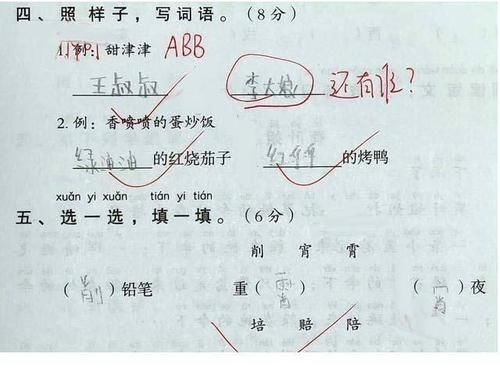 四、照样子，写词语。（8分）
1. 例：甜津津 ABB
王叔叔 李大娘 还有谁？
2. 例：香喷喷的蛋炒饭
绿油油的红烧茄子 红彤彤的烤鸭
xuǎn yi xuǎn tián yi tián
五、选一选，填一填。（6分）
削 宵 霄
（削）铅笔 重（霄） （宵）夜
培 赔 陪